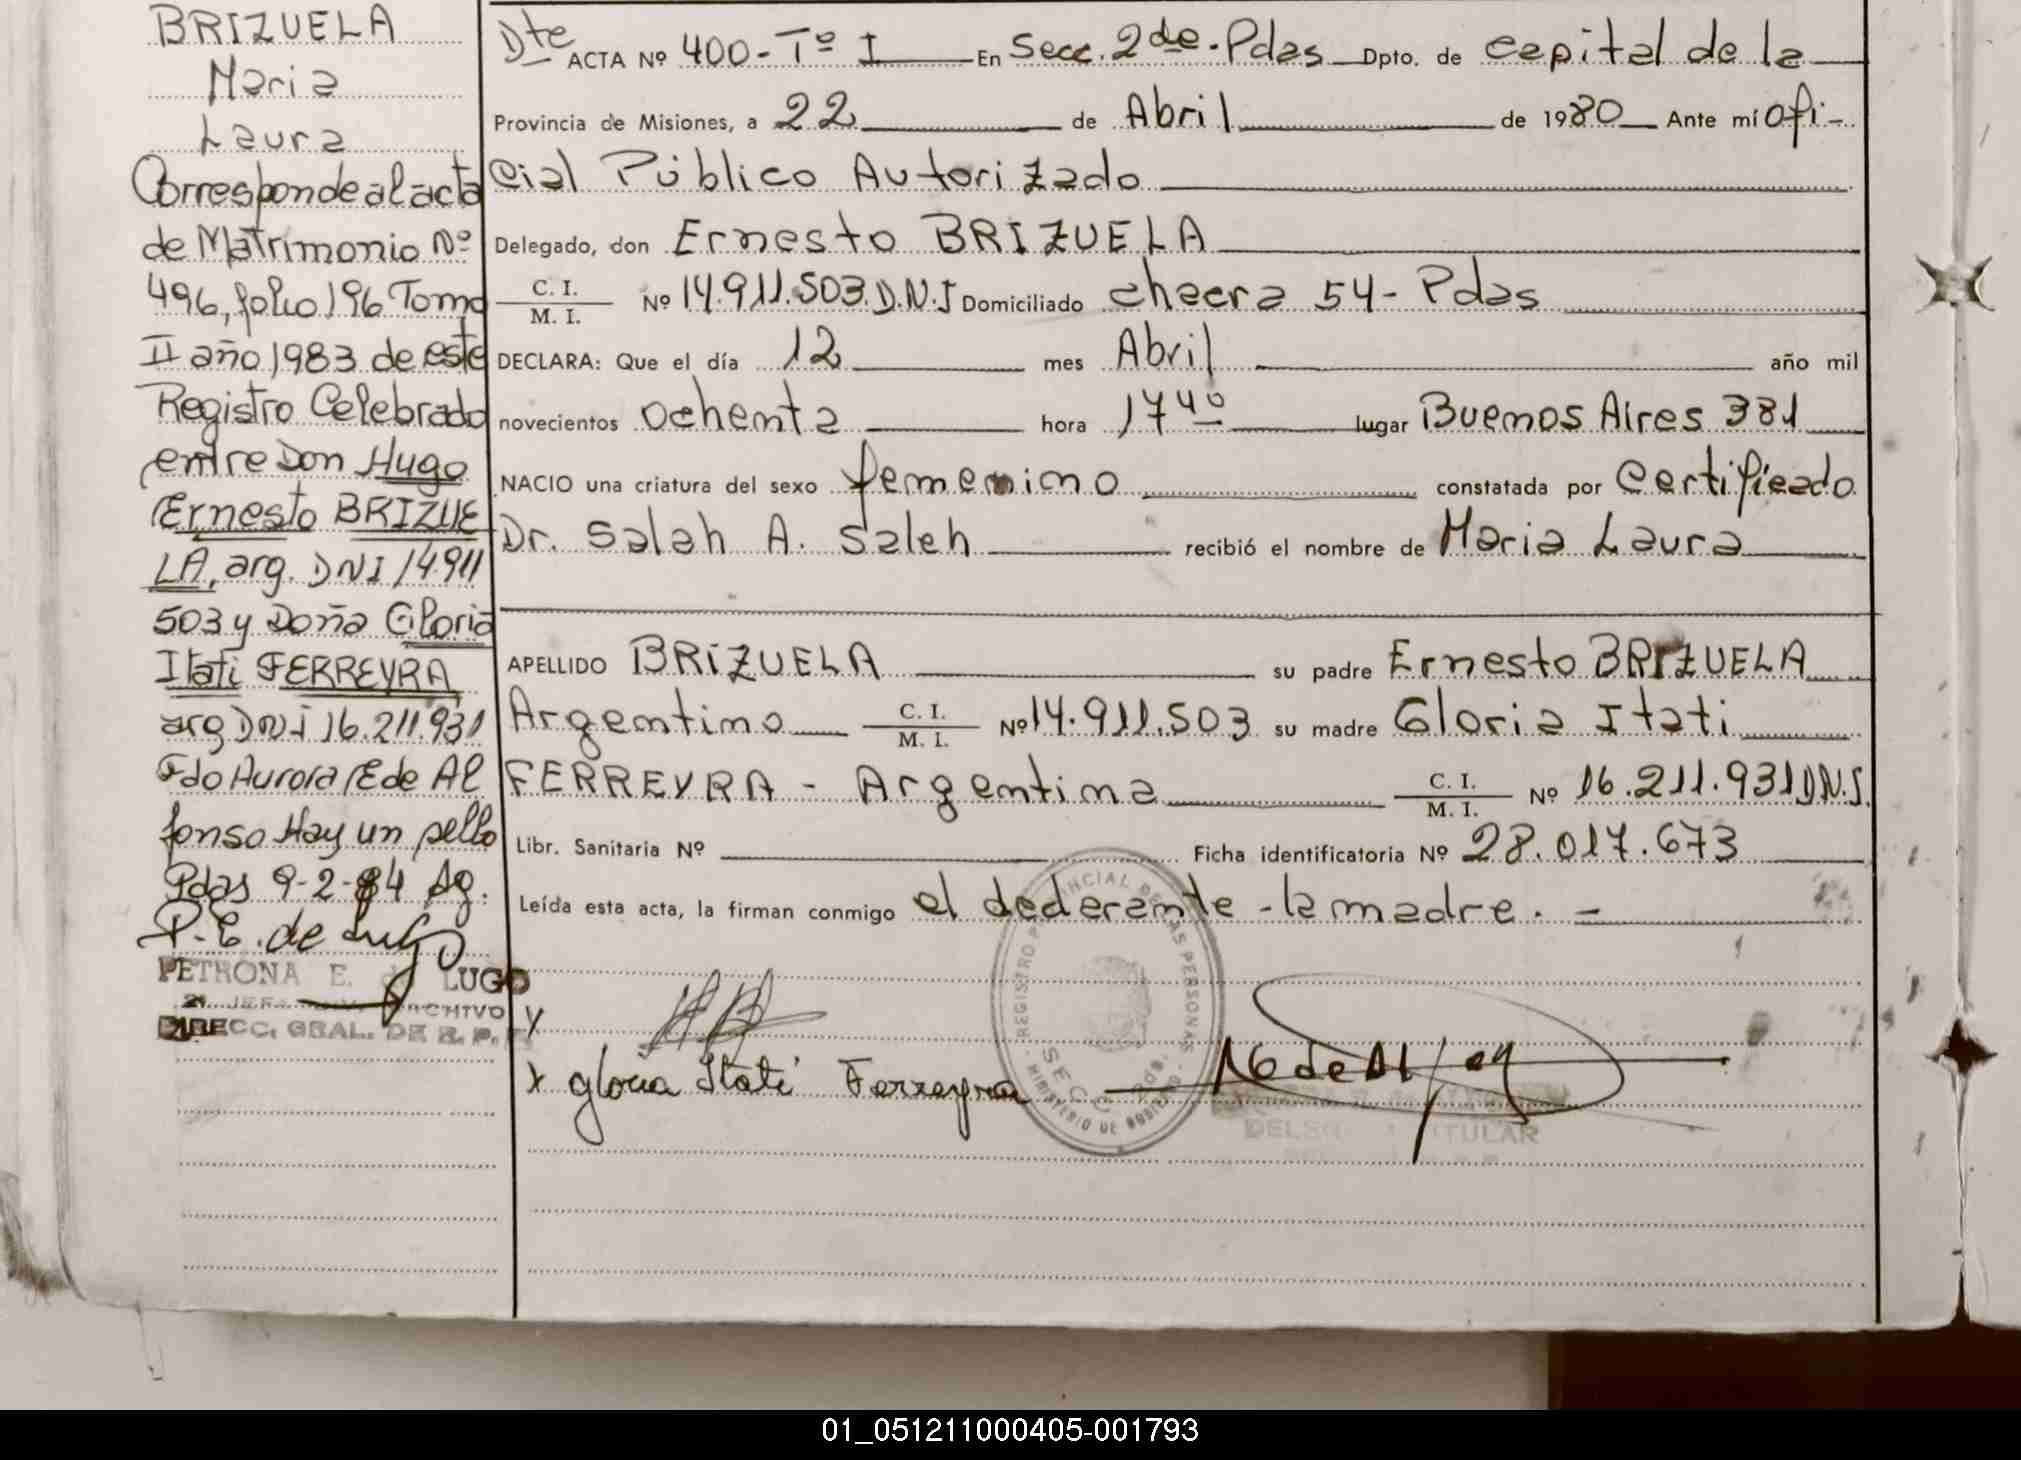 BRIZUELA
Maria
Laura
Corresponde al acta
de Matrimonio Nº
496, folio 196 Tomo
II año 1983 de este
Registro Celebrado
entre Don Hugo
Ernesto BRIZUE
LA, arg. DNI 14.911
503 y Doña Gloria
Itati FERREYRA
arg DNI 16.211.931
Fdo Aurora E de Al
fonso Hay un sello
Pdas 9-2-84 Ag.
P. E. de Lugo
PETRONA E. LUGO
ARCHIVO
DIRECC. GRAL. DE R. P.
Dte ACTA Nº 400 - Tº I En Secc. 2da - Pdas Dpto. de capital de la
Provincia de Misiones, a 22 de Abril de 1980 Ante mí ofi-
cial Público Autorizado
Delegado, don Ernesto BRIZUELA
C. I.
M. I. Nº 14.911.503.D.N.I Domiciliado chacra 54 - Pdas
DECLARA: Que el día 12 mes Abril año mil
novecientos ochenta hora 17 40 lugar Buenos Aires 381
NACIO una criatura del sexo femenino constatada por Certificado
Dr. Salah A. Saleh recibió el nombre de Maria Laura
APELLIDO BRIZUELA su padre Ernesto BRIZUELA
Argentino C. I.
M. I. Nº 14.911.503 su madre Gloria Itati
FERREYRA - Argentina C. I.
M. I. Nº 16.211.931 D.N.I.
Libr. Sanitaria Nº Ficha identificatoria Nº 28.017.673
Leída esta acta, la firman conmigo el declarante - la madre. -
REGISTRO PROVINCIAL DE LAS PERSONAS
SECC. 2da.
MINISTERIO DE GOBIERNO
x Gloria Itati Ferreyra
TITULAR
01_051211000405-001793